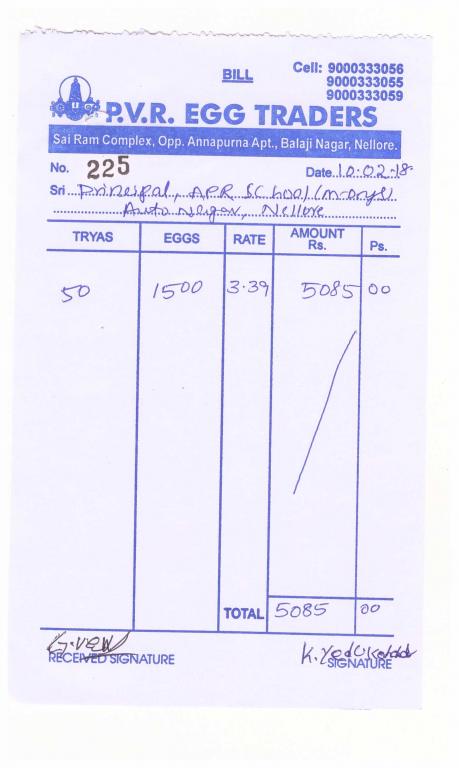 BILL
Cell: 9000333056
9000333055
9000333059
P.V.R. EGG TRADERS
Sai Ram Complex, Opp. Annapurna Apt., Balaji Nagar, Nellore.
No. 225 Date 10-02-18
Sri Principal, APR School
Auto Nagar, Nellore
TRYAS EGGS RATE AMOUNT Rs. Ps.
50 1500 3.39 5085 00
TOTAL 5085 00
RECEIVED SIGNATURE SIGNATURE